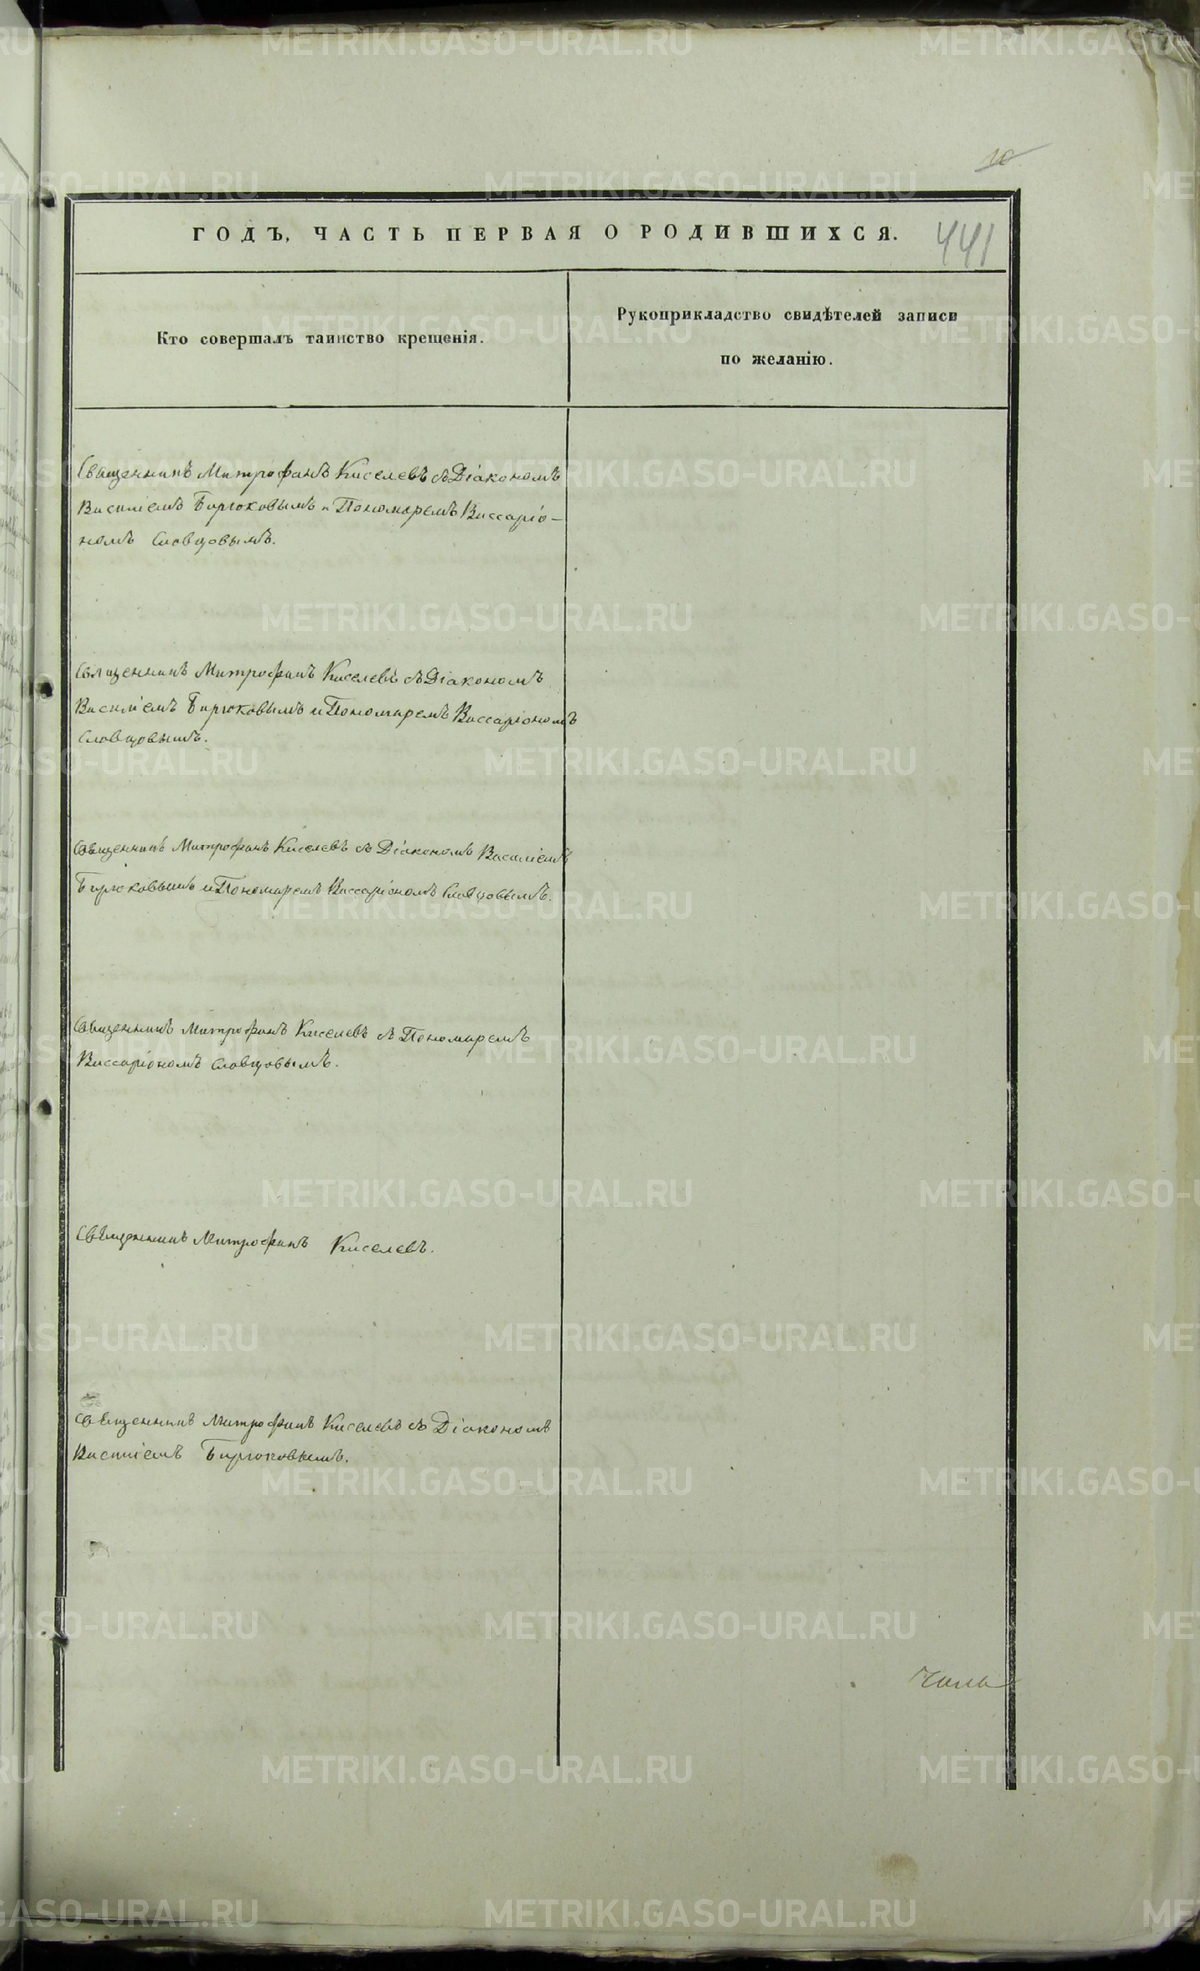 10
ГОДЪ, ЧАСТЬ ПЕРВАЯ О РОДИВШИХСЯ.
441
Кто совершалъ таинство крещенія.
Рукоприкладство свидѣтелей записи
по желанію.
Священникъ Митрофанъ Киселевъ съ Діакономъ
Василіемъ Бирюковымъ и Пономаремъ Виссаріо-
номъ Словцовымъ.
Священникъ Митрофанъ Киселевъ съ Діакономъ
Василіемъ Бирюковымъ и Пономаремъ Виссаріономъ
Словцовымъ.
Священникъ Митрофанъ Киселевъ съ Діакономъ Василіемъ
Бирюковымъ и Пономаремъ Виссаріономъ Словцовымъ.
Священникъ Митрофанъ Киселевъ съ Пономаремъ
Виссаріономъ Словцовымъ.
Священникъ Митрофанъ Киселевъ.
Священникъ Митрофанъ Киселевъ съ Діакономъ
Василіемъ Бирюковымъ.
METRIKI.GASO-URAL.RU